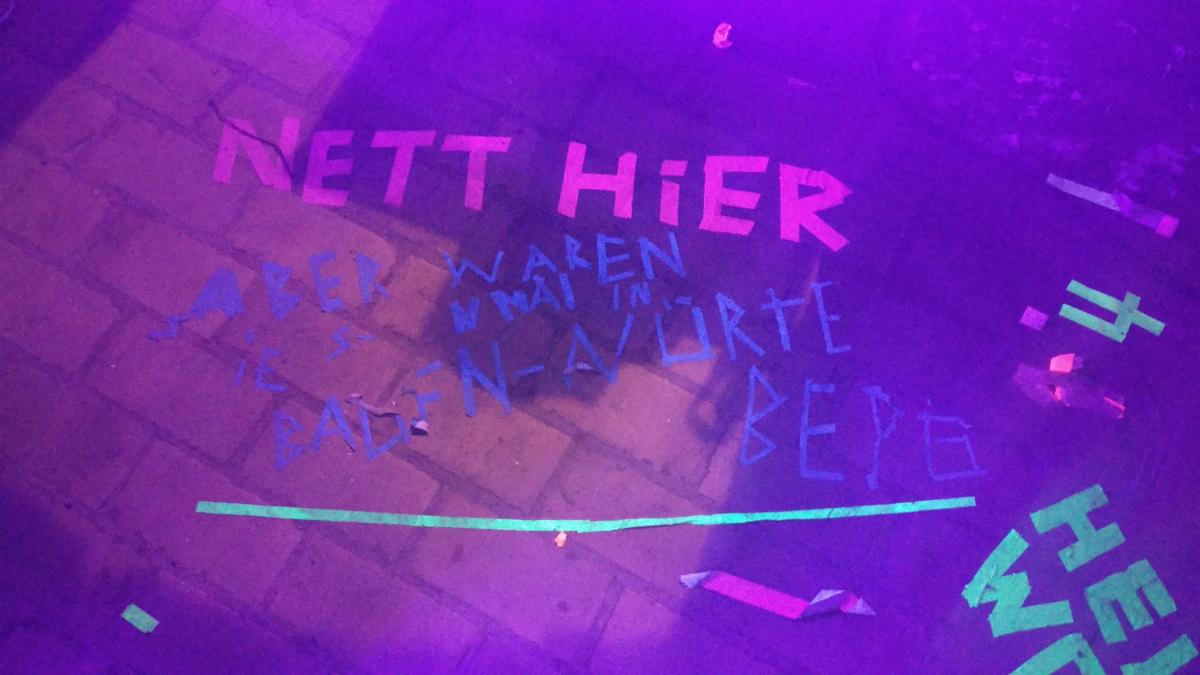 NETT HiER
ABER WAREN
iE S- N MAL IN...
BADEN-WÜRTE
BEPE
HEI